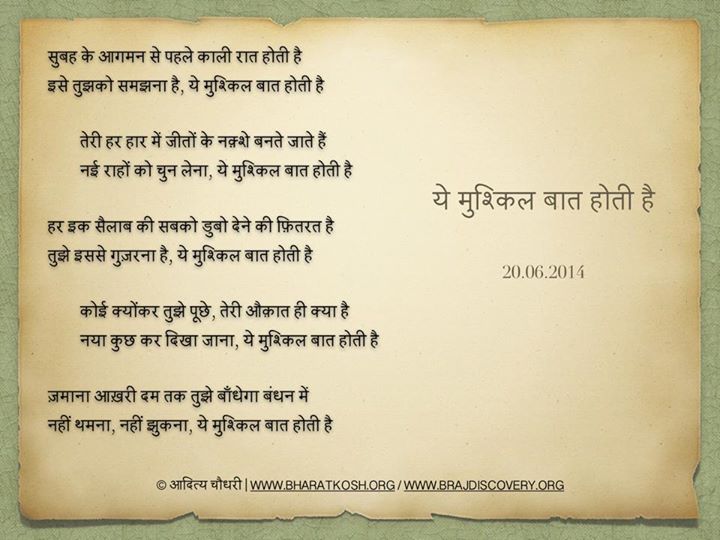 सुबह के आगमन से पहले काली रात होती है
इसे तुझको समझना है, ये मुश्किल बात होती है
तेरी हर हार में जीतों के नक़्शे बनते जाते हैं
नई राहों को चुन लेना, ये मुश्किल बात होती है
हर इक सैलाब की सबको डुबो देने की फ़ितरत है
तुझे इससे गुज़रना है, ये मुश्किल बात होती है
कोई क्योंकर तुझे पूछे, तेरी औक़ात ही क्या है
नया कुछ कर दिखा जाना, ये मुश्किल बात होती है
ज़माना आख़री दम तक तुझे बाँधेगा बंधन में
नहीं थमना, नहीं झुकना, ये मुश्किल बात होती है
ये मुश्किल बात होती है
20.06.2014
© आदित्य चौधरी | WWW.BHARATKOSH.ORG / WWW.BRAJDISCOVERY.ORG